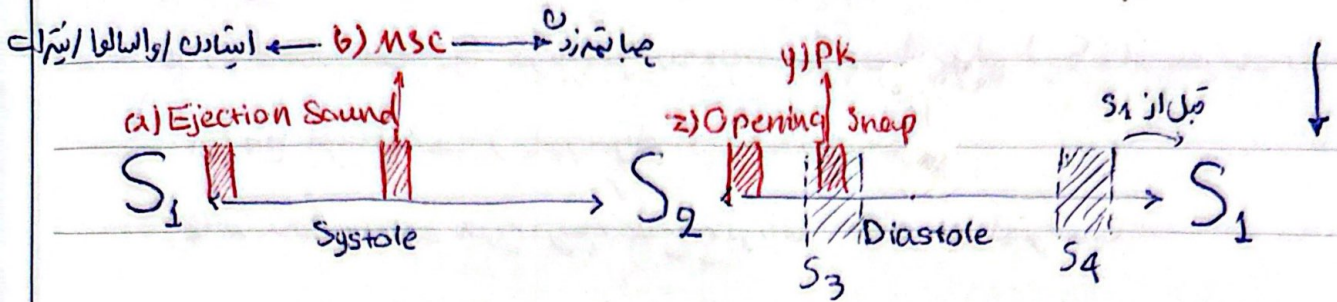 ایستادن/والسالوا/نیترات ← b) MSC → چمباتمه زدن
y) PK
(a) Ejection Sound z) Opening Snap قبل از S1
S1 S2 S1
Systole Diastole
S3 S4